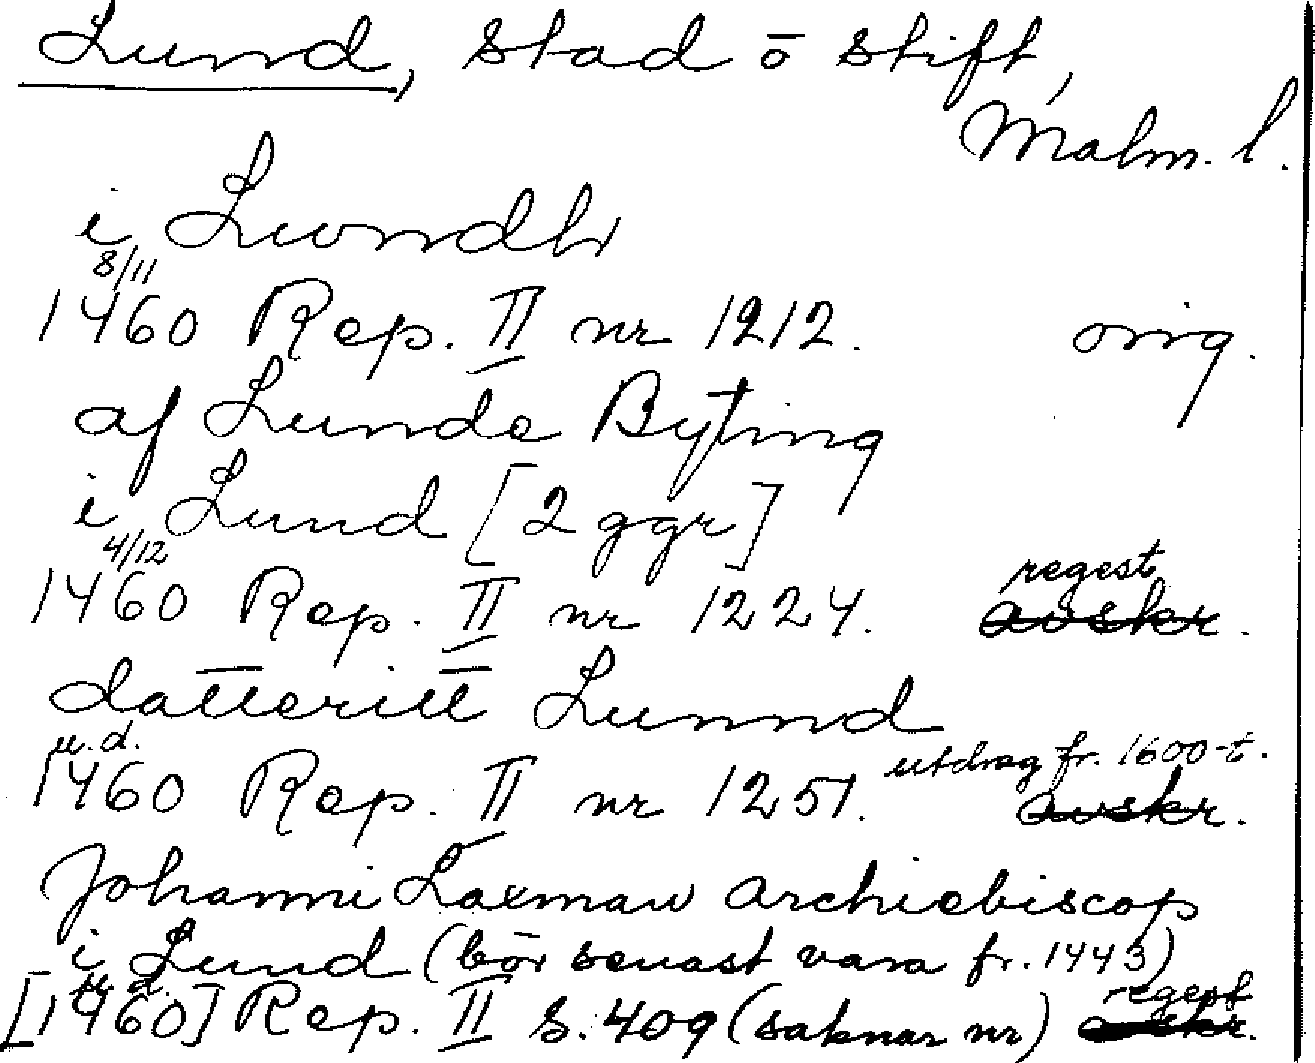 Lund, stad ō stift,
Malm. l.
i Lwndh
8/11
1460 Rep. II nr 1212. orig.
af Lunde Byting
i Lund [2 ggr]
4/12 regest
1460 Rep. II nr 1224. avskr.
datteritt Lunnd
u.d. utdrag fr. 1600-t.
1460 Rep. II nr 1251. avskr.
Johanni Laxman archiebiscop
i Lund (bör senast vara fr. 1443)
u.d. regest
[1460] Rep. II s. 409 (saknar nr) avskr.